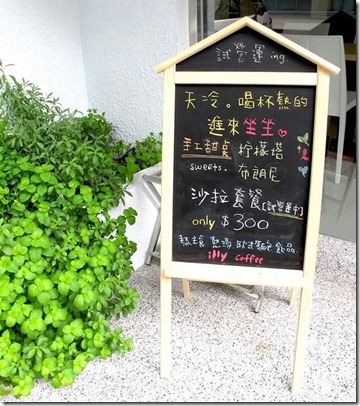 試營運ing
天冷。喝杯熱的
進來坐坐
手工甜點 檸檬塔
sweets. 布朗尼
沙拉套餐[試營運中]
only $300
熱主食 熱湯 歐式麵包 飲品
illy coffee